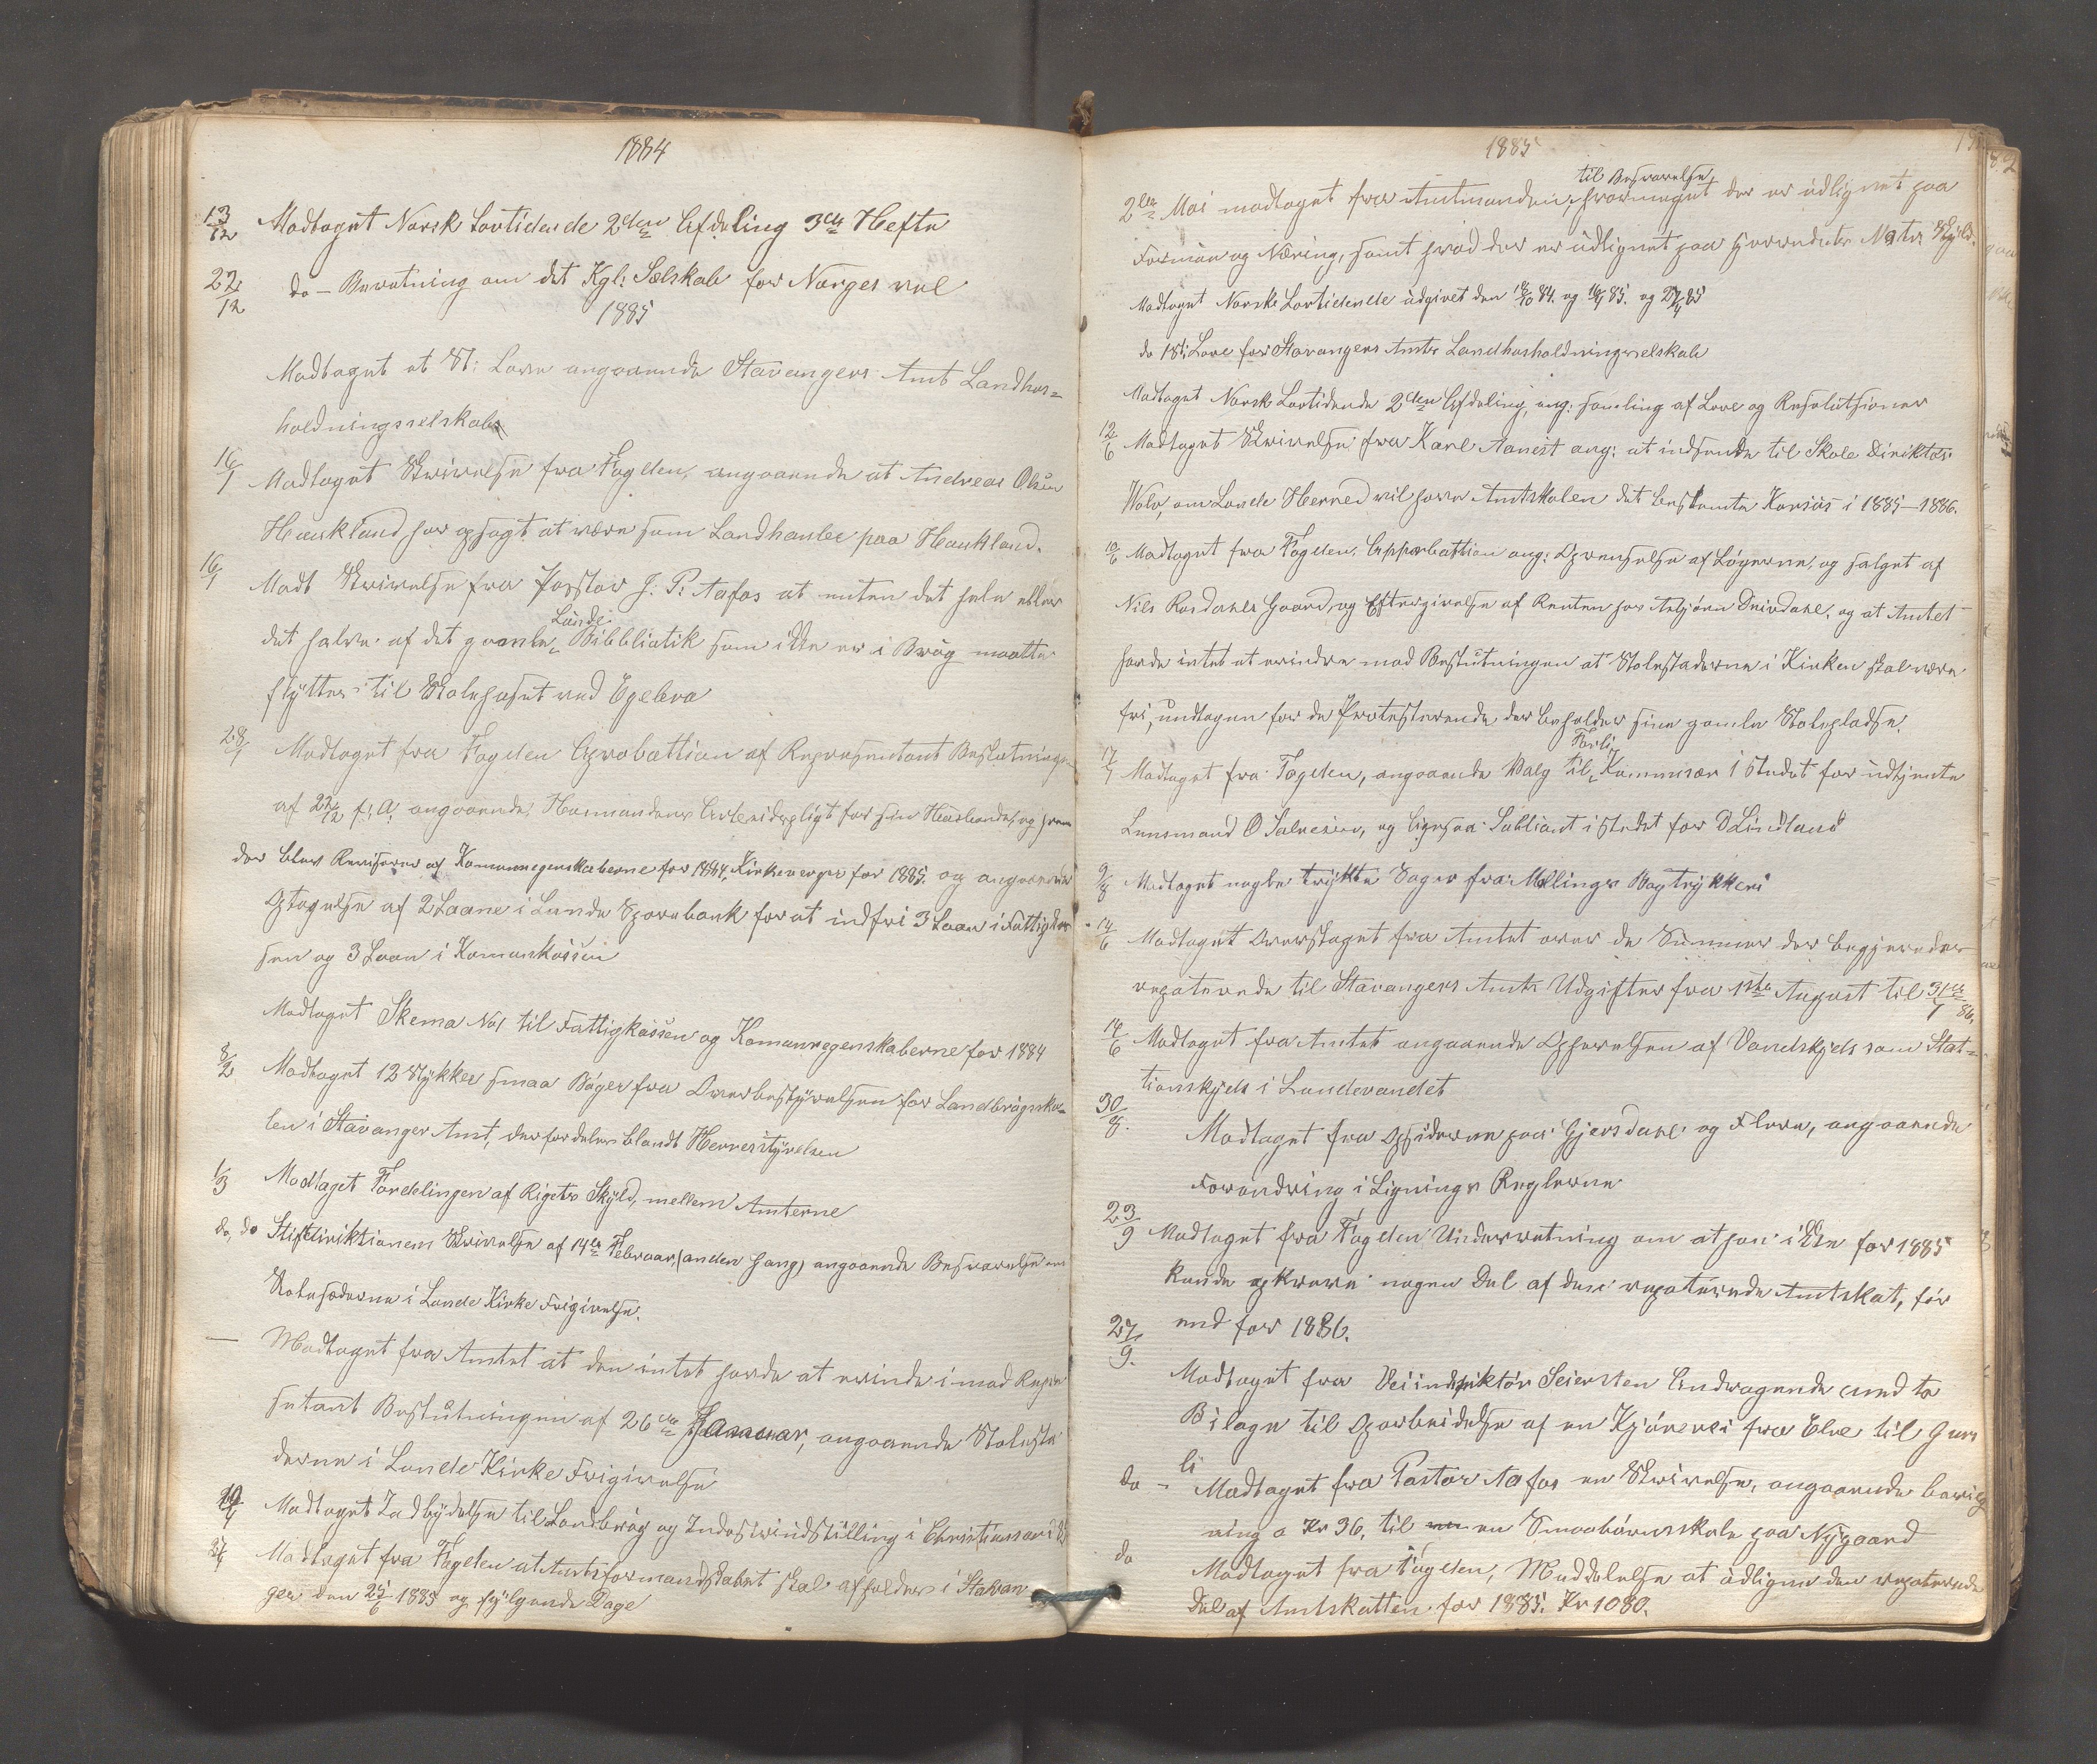 1884
13/12 Modtaget Norsk Lovtidende 2den Afdeling 3die Hefte
22/12 do – Beretning om det Kgl: Selskab for Norges vel
1885
Modtaget et St: Love angaaende Stavangers Amt Landhus=
holdningsselskab
16/1 Modtaget Skrivelse fra Fogden, angaaende at Andreas Olsen
Haukland har opsagt at være som Landhanler paa Haukland.
16/1 Modt Skrivelse fra Pastor J. P. Aafos at enten det hele eller
Lunde
det halve af det gamle, Bibbliotik som ikke er i Brug maatte
flyttes til Skolehuset ved Egebro
28/1 Modtaget fra Fogden Aprobattion af Represententant Beslutninge
af 22/12 f: A: angaaende Husmandens Arbeidspligt for sin Husbonde, og hvem
der blev Revisorer af Komuneregenskaberne for 1884, Kirkeverger for 1885. og angaaende
Optagelse af 2 Laane i Lunde Sparebank for at indfri 3 Laan i Fattigkas
sen og 3 Laan i Komunekassen
Modtaget Skema No1 til Fattigkassen og Komunregenskaberne for 1884
8/2 Modtaget 12 Stykker smaa Bøger fra Overbestyrelsen for Landbrugssko=
len i Stavanger Amt, der fordeles blandt Herresstyrelsen
1/3 Modtaget Fordelingen af Rigets Skyld, mellem Amterne
do, do Stiftdiriktionens Skrivelse af 14de Februar, (anden Gang) angaaende Besvarelse om
Stolesæderne i Lunde Kirke Frigivelse.
— Modtaget fra Amtet at den intet havde at erindre imod Repre
sentant Beslutningen af 26de Januar, angaaende Stolesta
derne i Lunde Kirke Frigivelse
Modtaget Indbydelse til Landbrug og Industriudstilling i Christianssand
27/4 Modtaget fra Fogden at Amtsformandskabet skal afholdes i Stavan
ger den 25/6 1885 og følgende Dage
1885
til Besvarelse
2den Mai modtaget fra Amtmanden, hvormeget der er udlignet paa
Formue og Næring, samt hvad der er udlignet paa hverendste Matr Skyld.
Modtaget Norske Lovtidende udgivet den 18/10 84. og 16/1 85. og 27/4 85
do 1 St: Love for Stavangers Amts Landhusholdningsselskab
Modtaget Norsk Lovtidende 2den Afdeling, ang: Samling af Love og Resolutsioner
12/6 Modtaget Skrivelse fra Karl Aanest ang: at indsende til Skole Direktør
Wolv, om Lunde Herred vil have Amtskolen det bestemte Kursus i 1885–1886.
10/6 Modtaget fra Fogden, Apporbattion ang: Oprenselse af Løgerne, og salget af
Nils Rosdahls Gaard, og Eftergivelse af Renten hos Asbjørn Drivdahl, og at Amtet
havde intet at erindre mod Beslutningen at Stolestaderne i Kirken skal være
fri, undtagen for de Protesterende der beholder sine gamle Stolepladse.
Forli
17/7 Modtaget fra Fogden, angaaende Valg til, Kommisær i stedet for udtjente
Lensmand O Salvesen, og ligesaa Subliant istedet for O Lindland
9/8 Modtaget nogle trykte Sager fra Møllings Bogtrykkeri
14/6 Modtaget Overslaget fra Amtet over de Summer der begjeredes
repaterede til Stavangers Amts Udgifter fra 1ste August til 31/7 86,
14/6 Modtaget fra Amtet angaaende Ophevelsen af Vandskyds som Stat=
tionskyds i Lundevandet
30/8. Modtaget fra Opsiderne paa Gjersdahl og Flove, angaaende
Forandring i Lignings Reglerne
23/9 Modtaget fra Fogden Underretning om at han ikke for 1885
kunde opkræve nogen Del af den repaterede Amtskat, før
end for 1886.
27/9. Modtaget fra Veiinspiktør Seiersten Andragende med to
Bilage til Oparbeidelse af en Kjørevei fra Elve til Gurs
li
do – Modtaget fra Pastor Aafos en Skrivelse, angaaende bevilg
ning a Kr 36, til en Smaabørnsskole paa Nygaard
do Modtaget fra Fogden, Meddelelse at udligne den repaterede
Del af Amtskatten for 1885. Kr 1080.